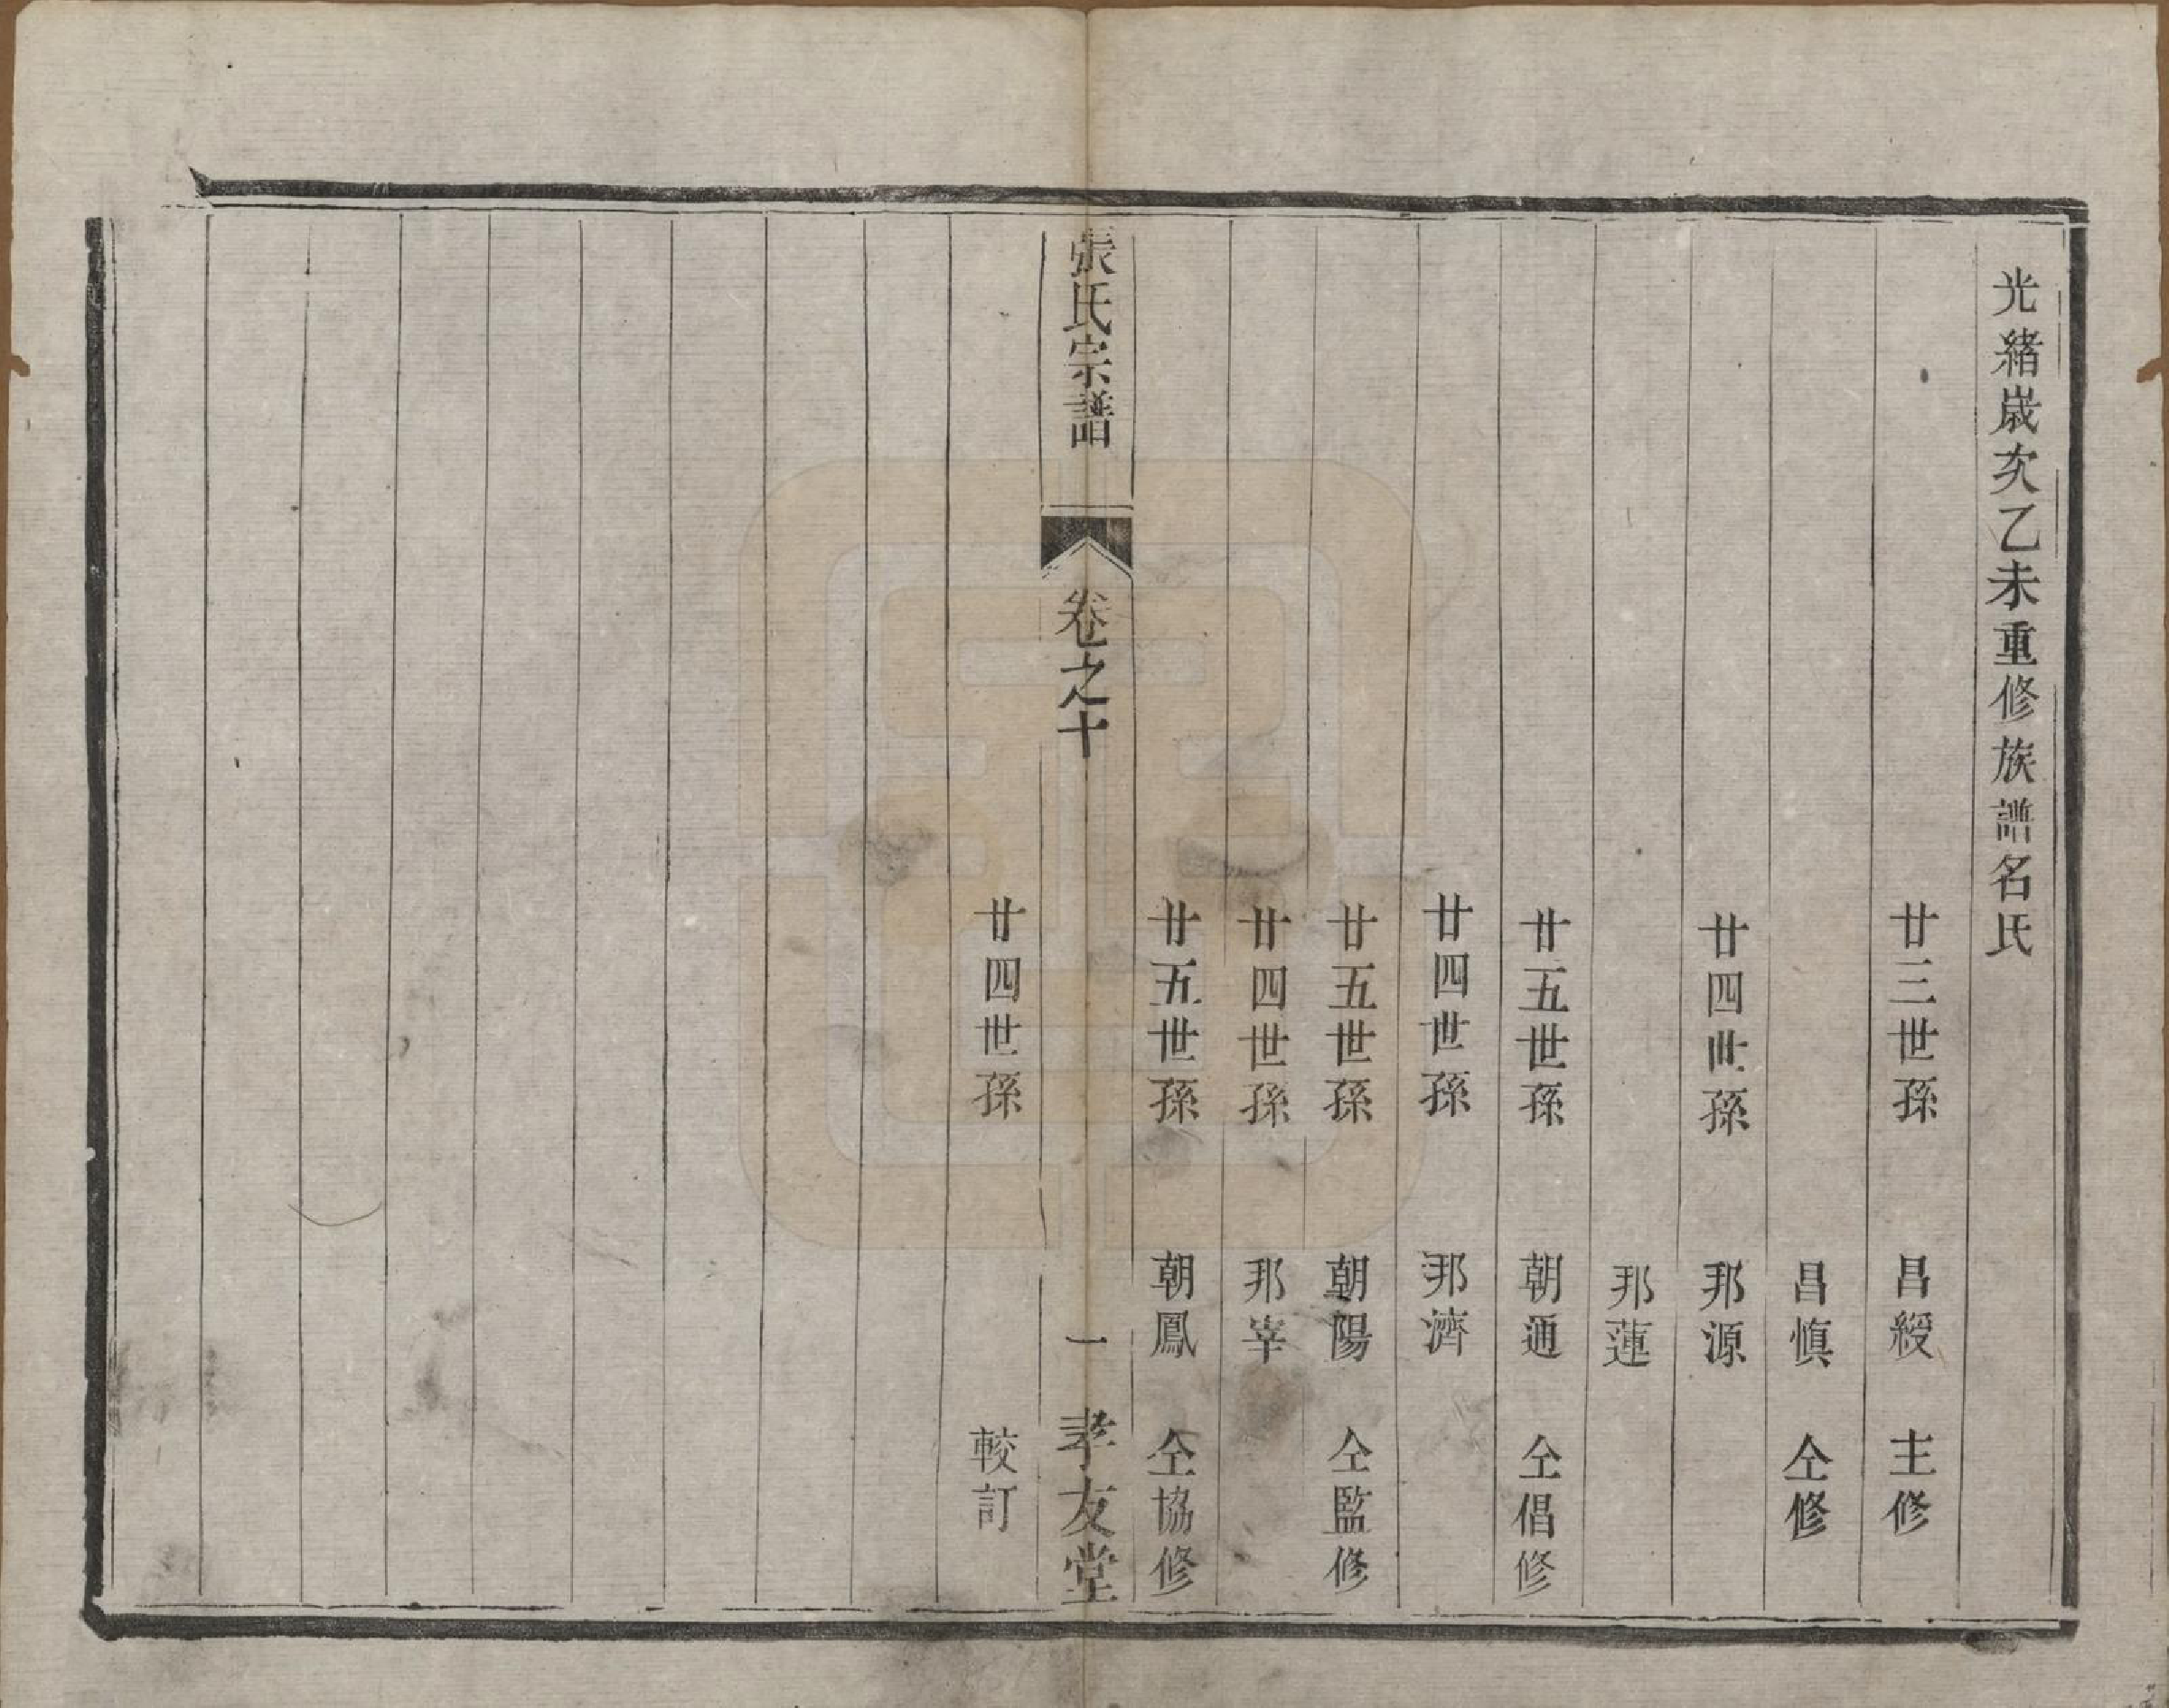 光緒嵗次乙未重修族譜名氏
廿三世孫 昌綬 主修
昌慎 仝修
廿四世孫 邦源
邦蓮
廿五世孫 朝通 仝倡修
廿四世孫 邦濟
廿五世孫 朝陽 仝監修
廿四世孫 邦宰
廿五世孫 朝鳳 仝協修
張氏宗譜 卷之十 一 孝友堂
廿四世孫 較訂